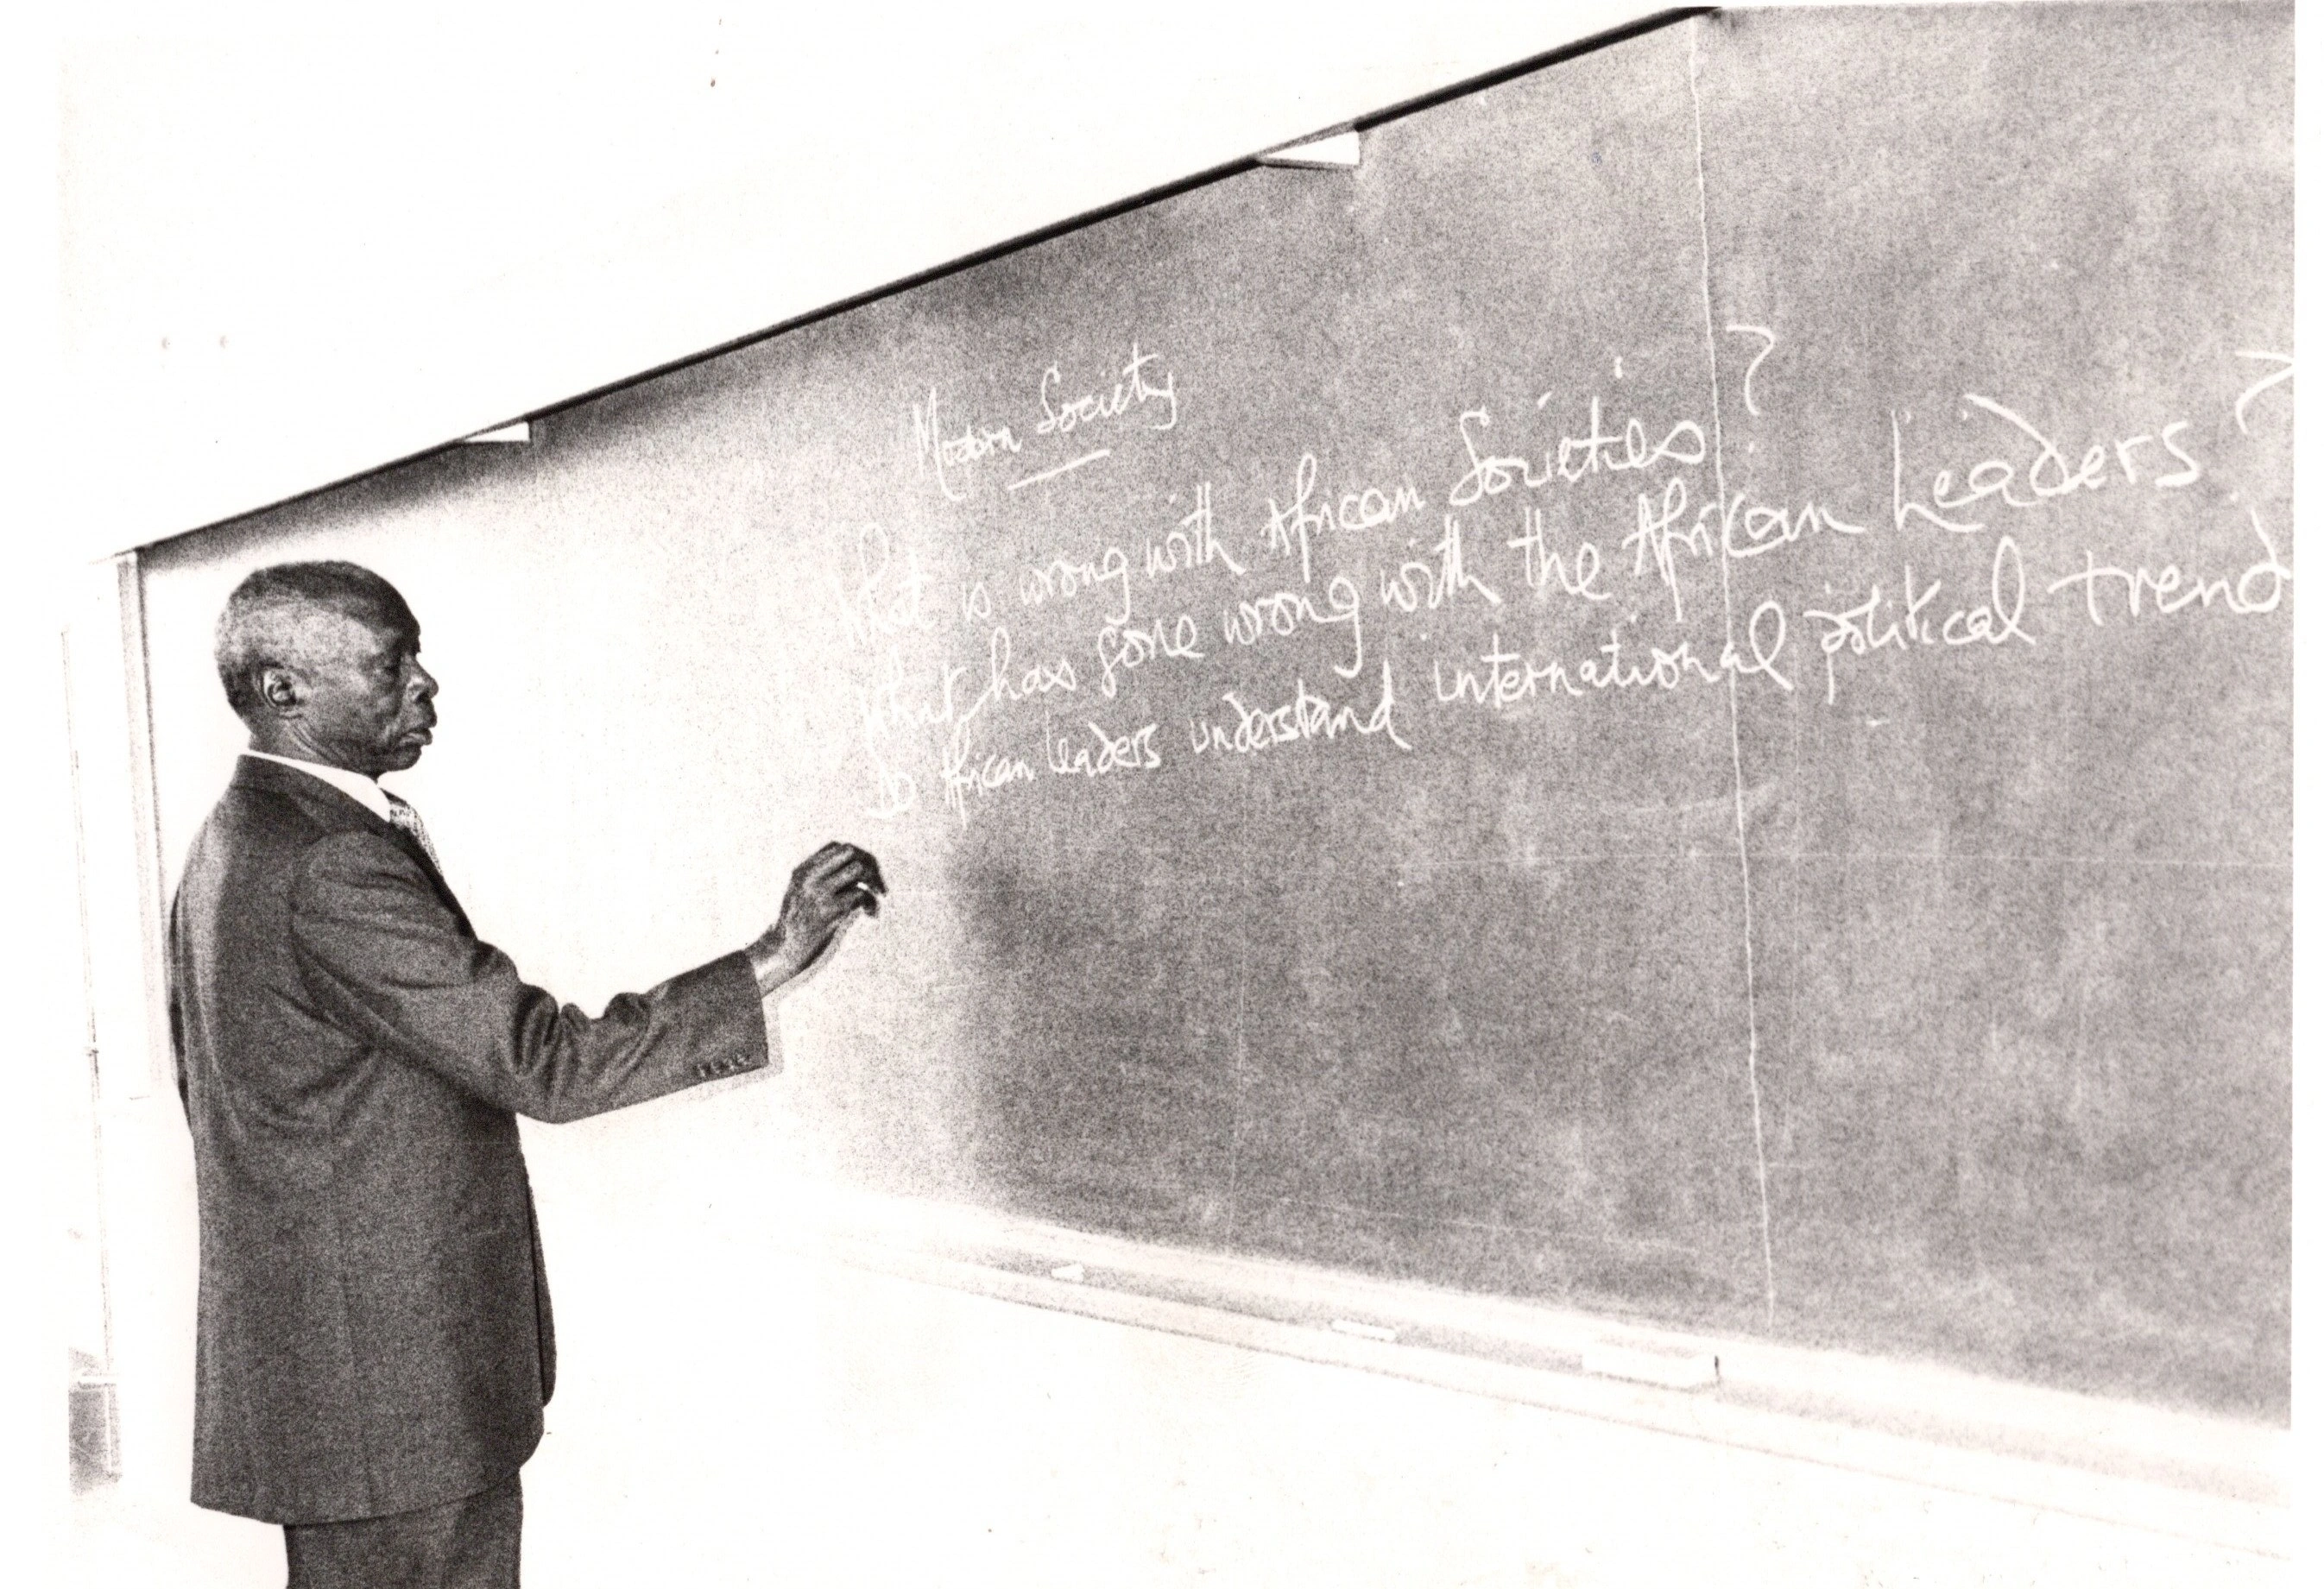 Modern Society
What is wrong with African Societies?
What has gone wrong with the African Leaders?
Do African leaders understand international political trend